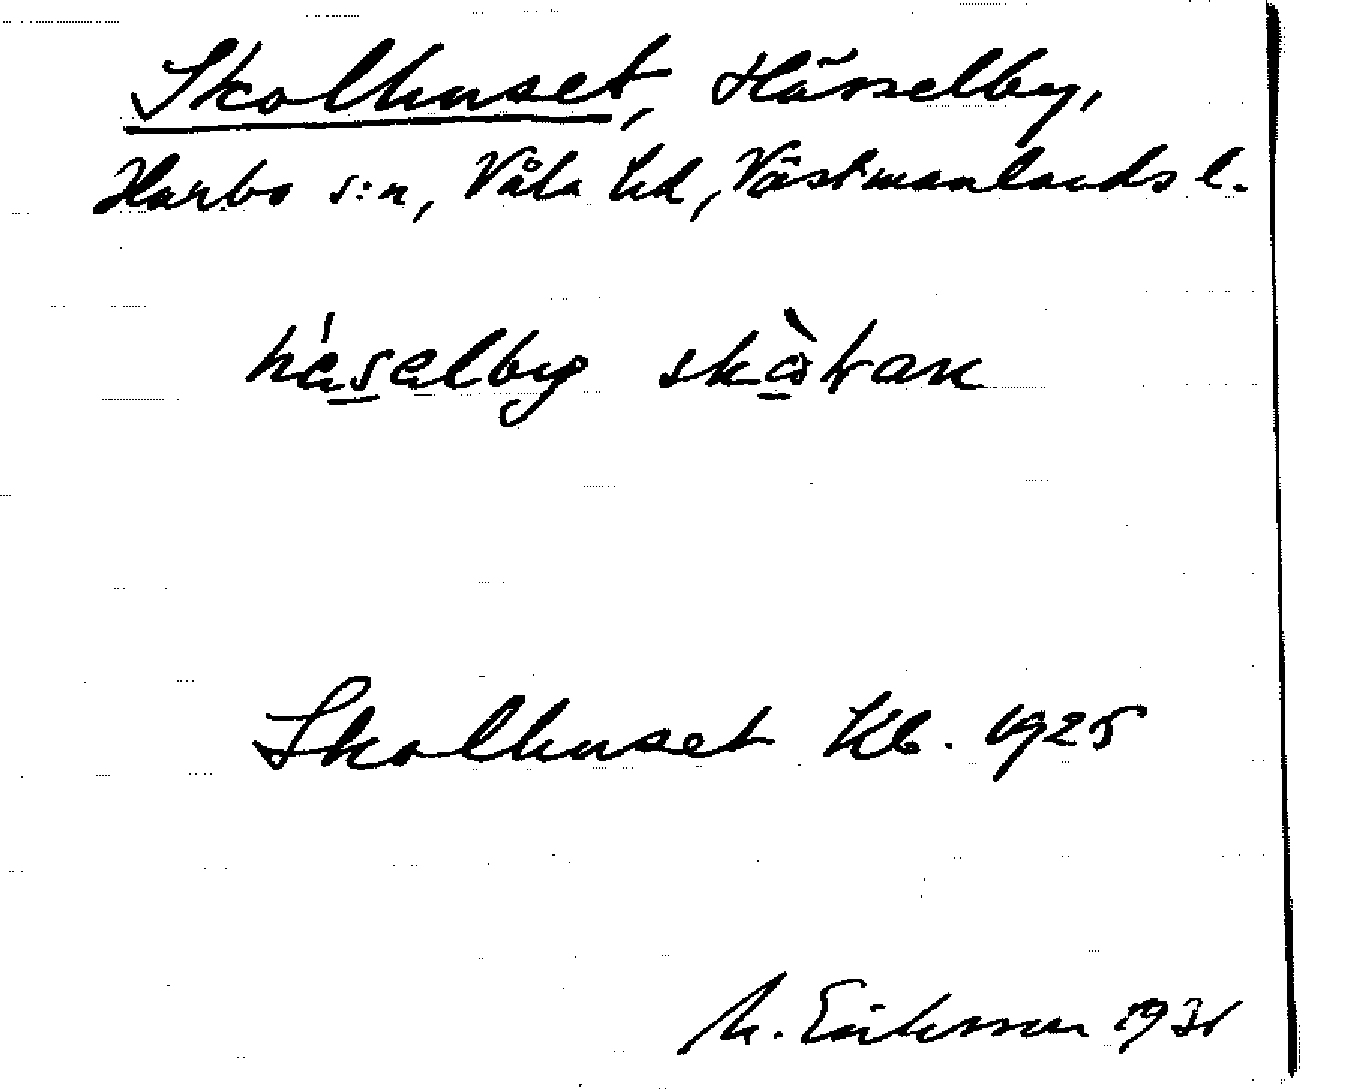 Skolhuset, Hässelby,
Harbo s:n, Våla hd, Västmanlands l.
háselby skò̀tan
Skolhuset Kb. 1925
M. Eriksson 1931